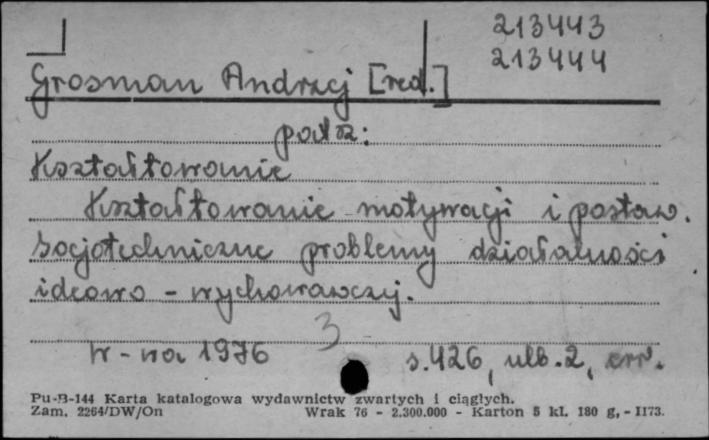 213443
213444
Grosman Andrzej [red.]
patrz:
Kształtowanie
Kształtowanie motywacji i postaw.
Socjotechniczne problemy działalności
ideowo - wychowawczej.
3
W-wa 1976 s. 426, nlb. 2, err.
Pu-B-144 Karta katalogowa wydawnictw zwartych i ciągłych.
Zam. 2264/DW/On Wrak 76 - 2.300.000 - Karton 5 kl. 180 g, - II73.